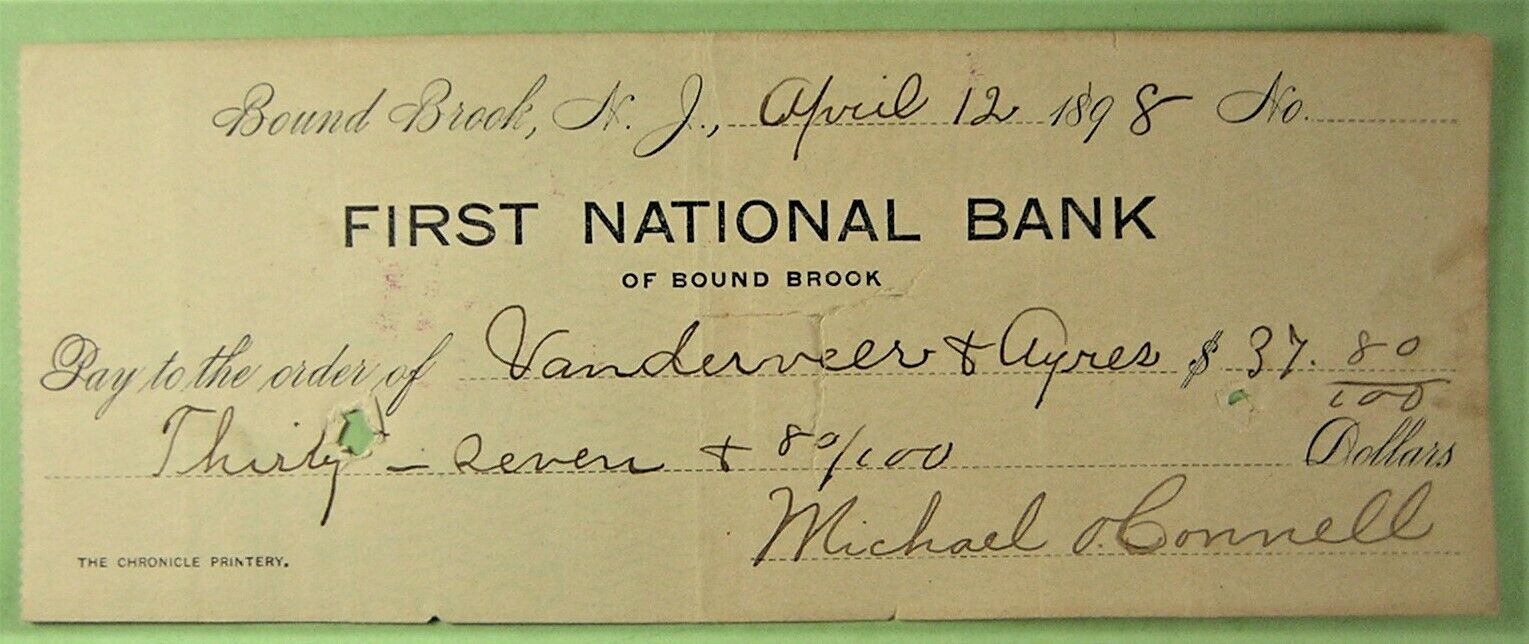 Bound Brook, N. J., April 12 1898 No.
FIRST NATIONAL BANK
OF BOUND BROOK
Pay to the order of Vanderveer & Ayres $ 37. 80/100
Thirty - seven & 80/100 Dollars
Michael O'Connell
THE CHRONICLE PRINTERY.